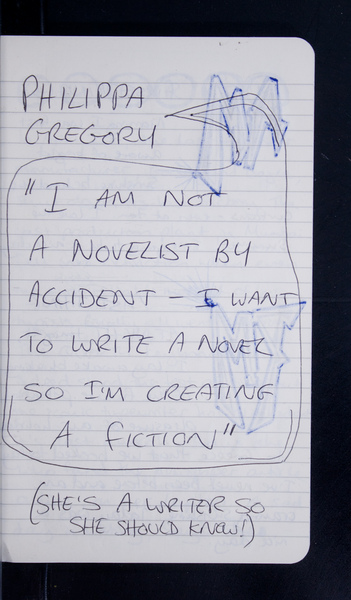 PHILIPPA
GREGORY
"I AM NOT
A NOVELIST BY
ACCIDENT – I WANT
TO WRITE A NOVEL
SO I'M CREATING
A FICTION"
(SHE'S A WRITER SO
SHE SHOULD KNOW!)